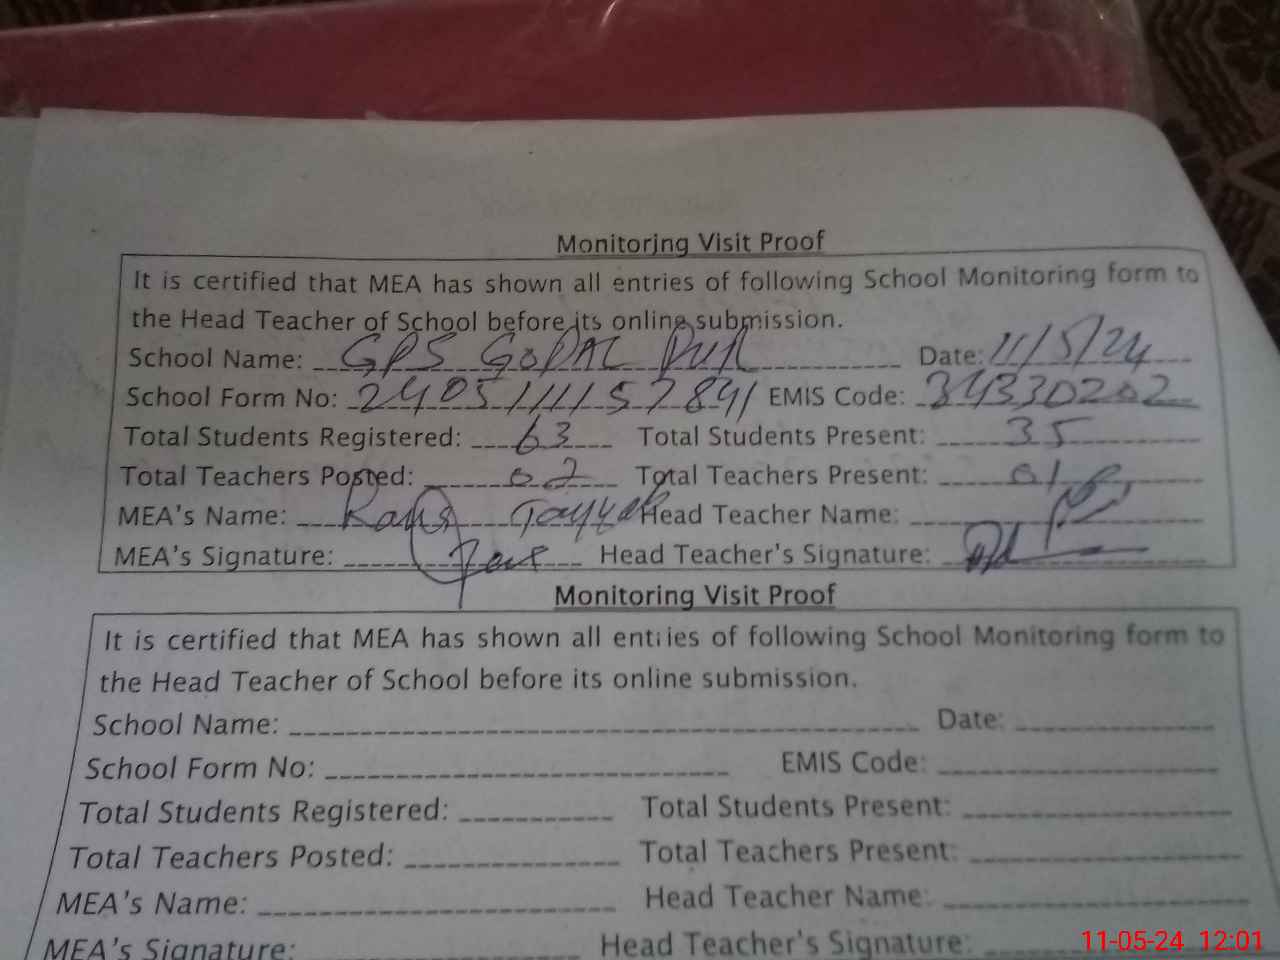 Monitoring Visit Proof
It is certified that MEA has shown all entries of following School Monitoring form to
the Head Teacher of School before its online submission.
School Name: GPS GOPAL PUR Date: 11/5/24
School Form No: 2405111157841 EMIS Code: 34330202
Total Students Registered: 63 Total Students Present: 35
Total Teachers Posted: 02 Total Teachers Present: 01
MEA's Name: Tayyab Head Teacher Name:
MEA's Signature: Head Teacher's Signature:
Monitoring Visit Proof
It is certified that MEA has shown all entries of following School Monitoring form to
the Head Teacher of School before its online submission.
School Name: Date:
School Form No: EMIS Code:
Total Students Registered: Total Students Present:
Total Teachers Posted: Total Teachers Present:
MEA's Name: Head Teacher Name:
MEA's Signature: Head Teacher's Signature:
11-05-24 12:01